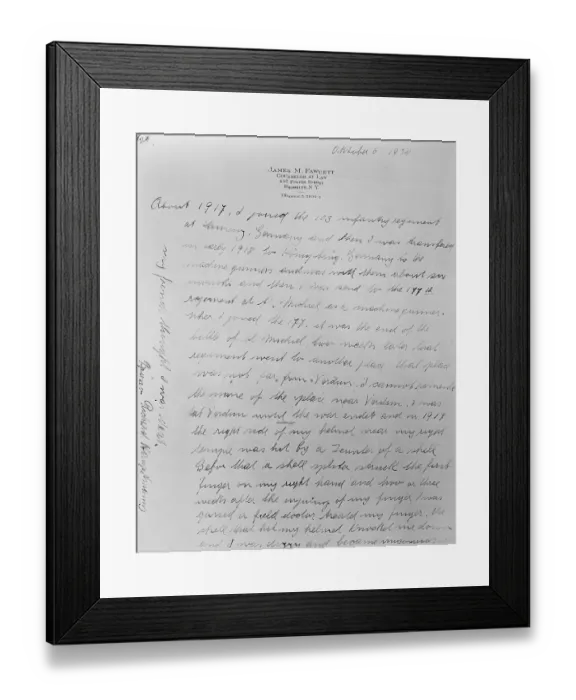 October 1936
JAMES M. FAWCETT
COUNSELOR AT LAW
BROOKLYN, N.Y.
About 1917, I joined the 103 infantry regiment
at Germany and then I was transfered
in early 1918 to Königsberg, Germany to be
machine gunner and was with them about six
months and then I was send to the 177
regiment at St. Mihiel as a machine gunner.
When I joined the 177. it was the end of the
battle of St Mihiel two weeks later that
regiment went to another place that place
was not far from Verdun. I cannot remember
the name of the place near Verdun. I was
at Verdun until the war endet and in 1918
the right side of my helmet near my right
temple was hit by a of a shell
Befor that a shell splinter struck the first
finger on my right hand and two or three
weeks after the injuring of my finger I was
gased a field doctor treated my finger. The
shell that hit my helmet knocked me down
and I was dizzy and became
my face thought I was dead